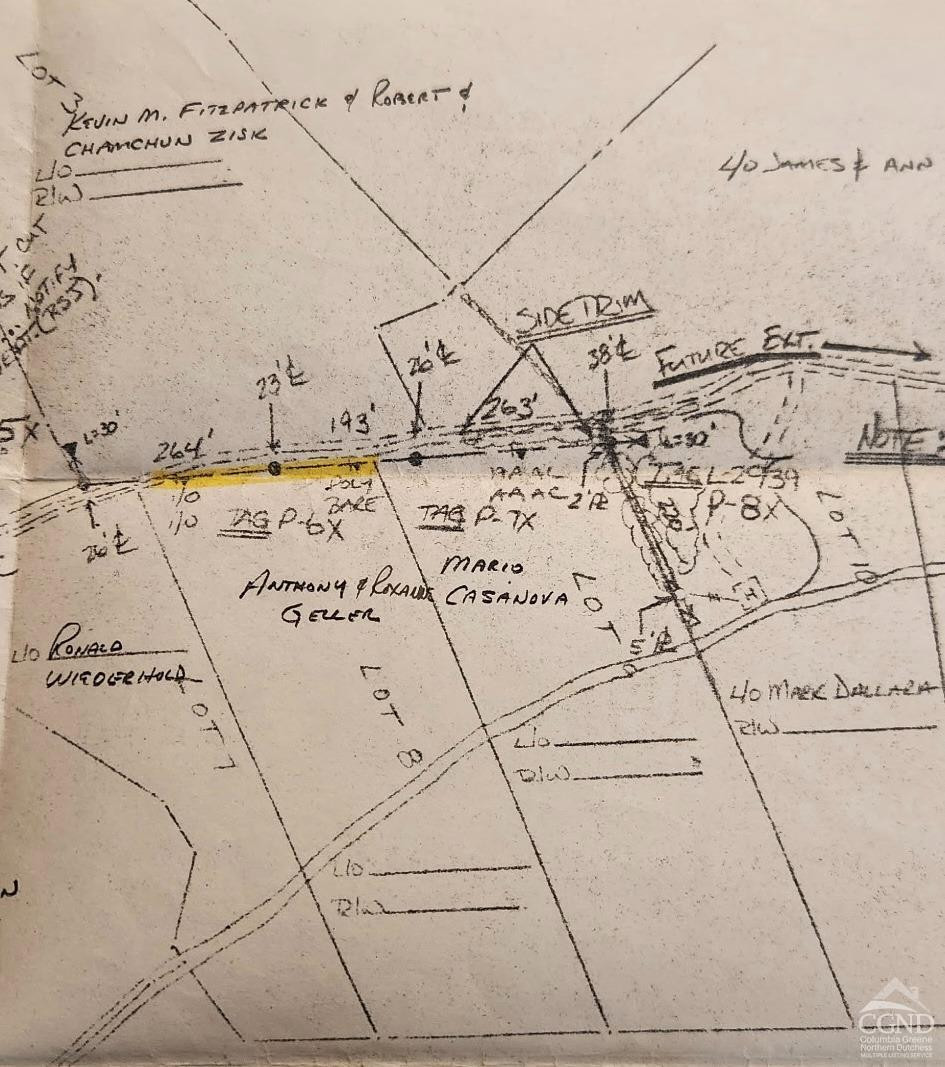 LOT 3
KEVIN M. FITZPATRICK & ROBERT &
CHAMCHUN ZISK
L/O
R/W
L/O JAMES & ANN
CUT
IF
NOTIFY
(RSS).
SIDE TRIM
38' ℄
FUTURE EXT.
26' ℄
23' ℄
5X
L=30'
264'
193'
263'
L=30'
NOTE:
1/0
1/0
POLY
BARE
AAAC
AAAC
2' ℄
26' ℄
TAG P-6X
TAG P-7X
P-8X
LOT 10
ANTHONY & ROXANNE
GELLER
MARIO
CASANOVA
H
LOT 9
5' ℄
L/O RONALD
WIEDERHOLD
LOT 7
LOT 8
L/O MARK DALLARA
R/W
L/O
R/W
L/O
R/W
N
CGND
Columbia Greene
Northern Dutchess
MULTIPLE LISTING SERVICE